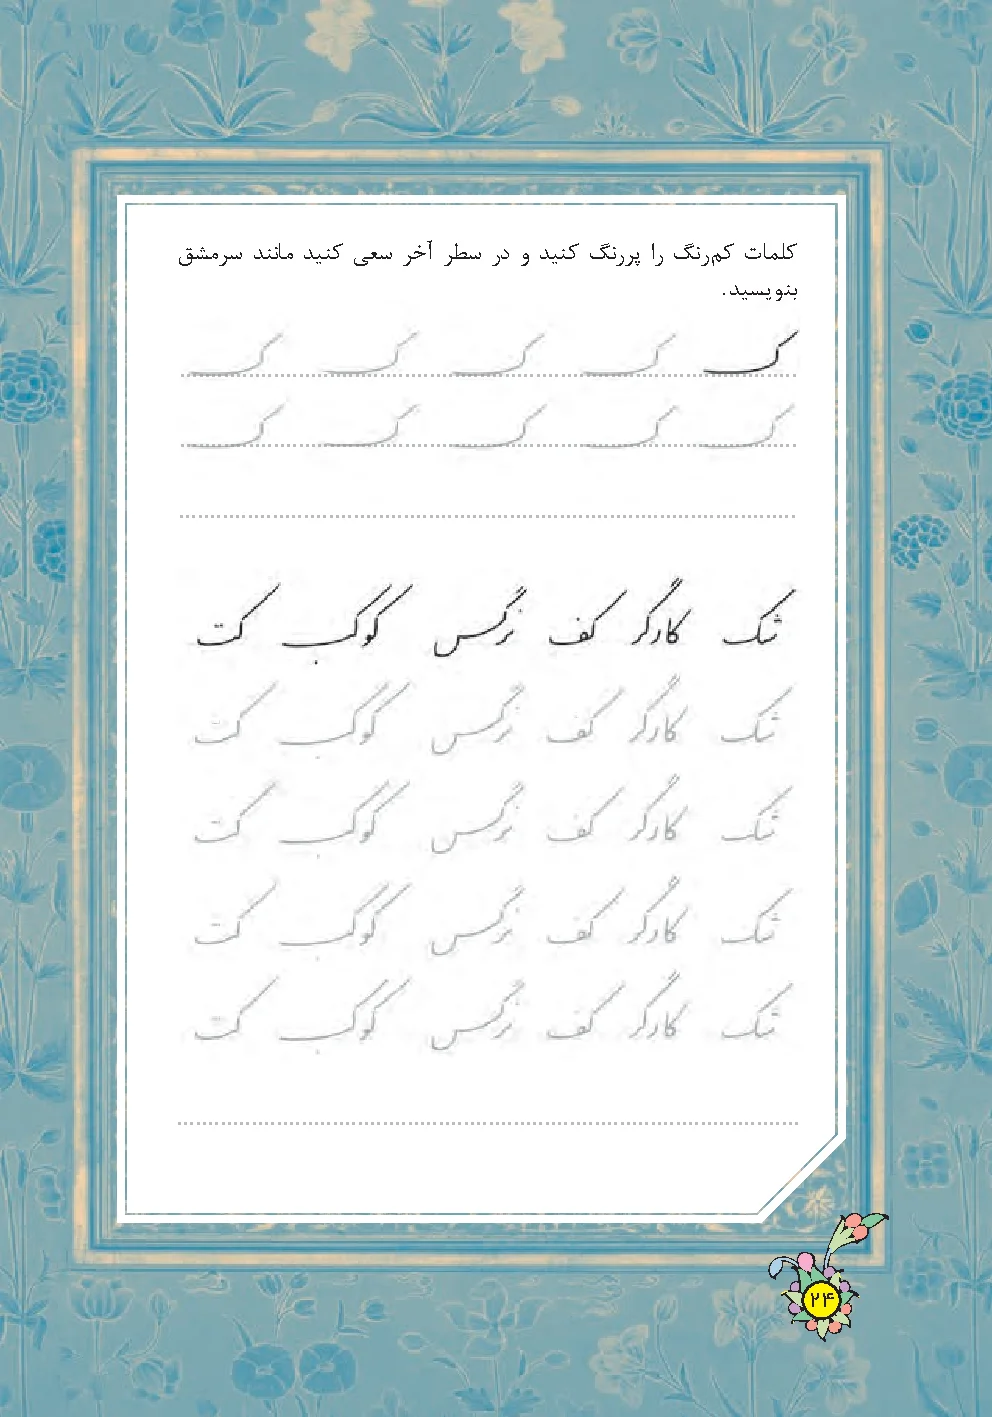 کلمات کم‌رنگ را پررنگ کنید و در سطر آخر سعی کنید مانند سرمشق
بنویسید.
ک ک ک ک ک
ک ک ک ک ک
شک کارگر کف نرگس کوکب کت
شک کارگر کف نرگس کوکب کت
شک کارگر کف نرگس کوکب کت
شک کارگر کف نرگس کوکب کت
شک کارگر کف نرگس کوکب کت
۲۴